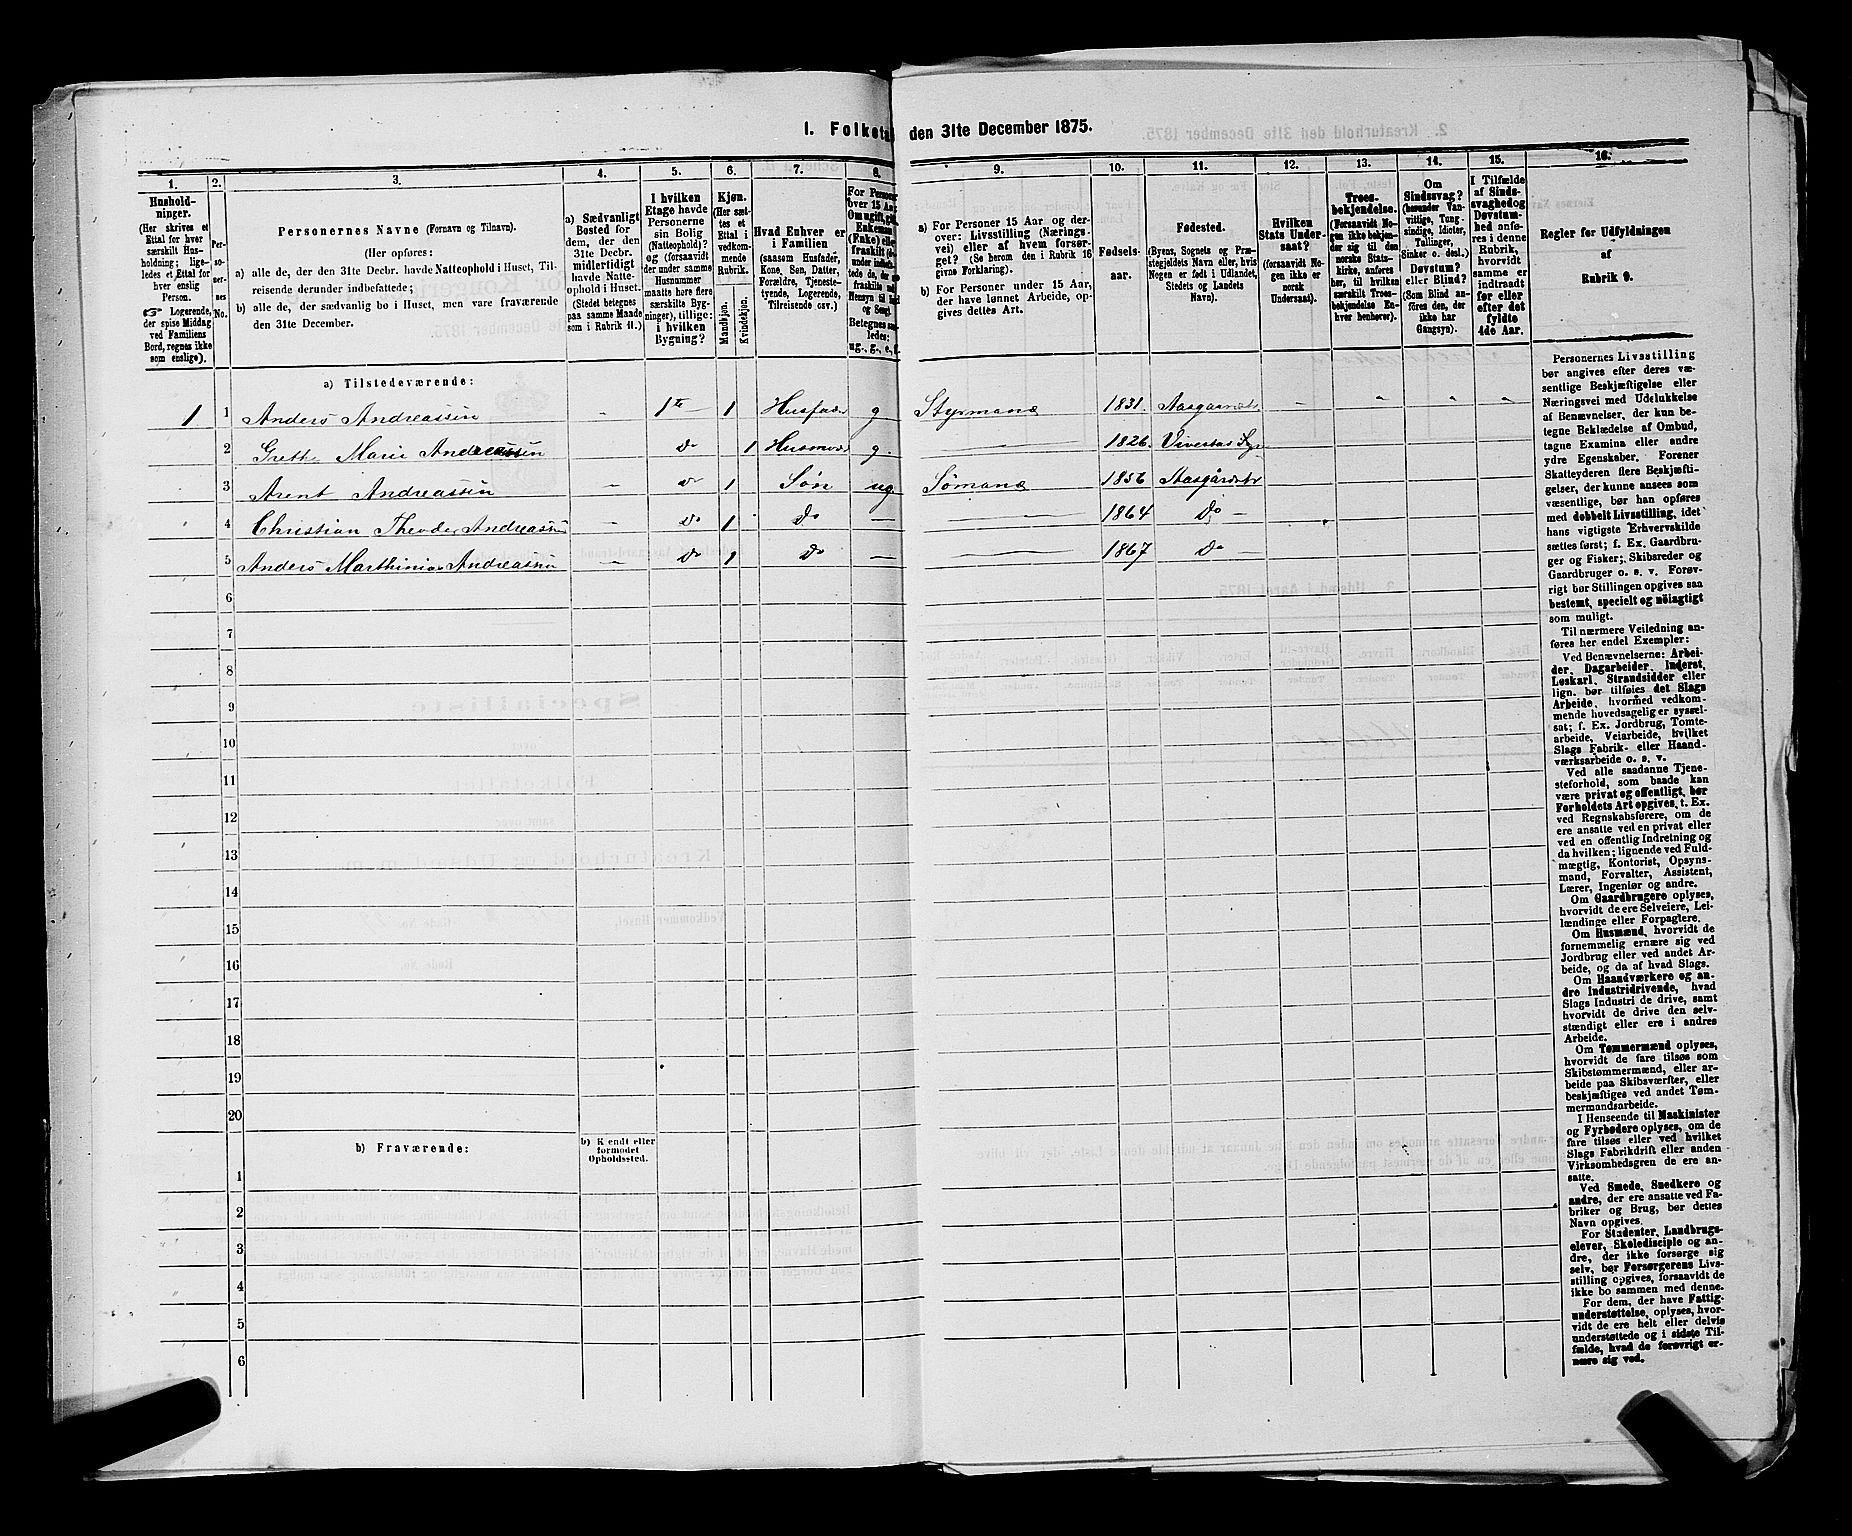 1. Folketæ den 31te December 1875.
1.
Hushold-
ninger.
(Her skrives et
Ettal for hver
særskilt Hus-
holdning; lige-
ledes et Ettal for
hver enslig
Person.
☞ Logerende,
der spise Middag
ved Familiens
Bord, regnes ikke
som enslige).
2.
Per-
so-
ner-
nes
No.
3.
Personernes Navne (Fornavn og Tilnavn).
(Her opføres:
a) alle de, der den 31te Decbr. havde Natteophold i Huset, Til-
reisende derunder indbefattede;
b) alle de, der sædvanlig bo i Huset, men vare fraværende
den 31te December.
4.
a) Sædvanligt
Bosted for
dem, der den
31te Decbr.
midlertidigt
havde Natte-
ophold i Huset.
(Stedet betegnes
paa samme Maade
som i Rubrik 11.)
5.
I hvilken
Etage havde
Personerne
sin Bolig
(Natteophold)?
og (forsaavidt
der under samme
Husnummer
maatte høre flere
særskilte Byg-
ninger), tillige:
i hvilken
Bygning?
6.
Kjøn.
(Her sæt-
tes et
Ettal i
vedkom-
mende
Rubrik.
Mandkjøn.
Kvindekjøn.
7.
Hvad Enhver er
i Familien
(saasom Husfader,
Kone, Søn, Datter,
Forældre, Tjeneste-
tyende, Logerende,
Tilreisende osv.)
8.
For Personer
over 15 Aar
Om ugift, gift,
Enkemand
(Enke) eller
fraskilt
Betegnes saa-
ledes:
ug., g., e., f.
9.
a) For Personer 15 Aar og der-
over: Livsstilling (Nærings-
vei) eller af hvem forsør-
get? (Se herom den i Rubrik 16
givne Forklaring).
b) For Personer under 15 Aar,
der have lønnet Arbeide, op-
gives dettes Art.
10.
Fødsels-
aar.
11.
Fødested.
(Byens, Sognets og Præ-
stegjeldets Navn eller, hvis
Nogen er født i Udlandet,
Stedets og Landets
Navn).
12.
Hvilken
Stats Under-
saat?
(forsaavidt No-
gen ikke er
norsk
Undersaat).
13.
Troes-
bekjendelse.
(Forsaavidt No-
gen ikke bekjen-
der sig til den
norske Stats-
kirke, anføres
her, til hvilken
særskilt Troes-
bekjendelse En-
hver henhører).
14.
Om
Sindssvag?
(herunder Van-
vittige, Tung-
sindige, Idioter,
Tullinger,
Sinker o. desl.)
Døvstum?
eller Blind?
(Som Blind an-
føres den, der
ikke har
Gangsyn).
15.
I Tilfælde
af Sinds-
svaghed og
Døvstum-
hed anfø-
res i denne
Rubrik,
hvorvidt
samme er
indtraadt
før eller
efter det
fyldte
4de Aar.
16.
Regler for Udfyldningen
af
Rubrik 9.
a) Tilstedeværende:
1 1 Anders Andreassen - 1te 1 Husfader g Styrmand 1831. Aasgaardstr
2 Greth. Marie Andreassen do 1 Husmor g. 1826.
3 Arent Andreassen - do 1 Søn ug Sømand 1856 Aasgårdstr
4 Christian Theodor Andreassen - Do 1 Do - 1864 Do -
5 Anders Marthinius Andreassen - Do 1 Do - 1867 Do -
6
7
8
9
10
11
12
13
14
15
16
17
18
19
20
b) Fraværende:
b) Kjendt eller
formodet
Opholdssted.
1
2
3
4
5
6
Personernes Livsstilling
bør angives efter deres væ-
sentlige Beskjæftigelse eller
Næringsvei med Udelukkelse
af Benævnelser, der kun be-
tegne Beklædelse af Ombud,
tagne Examina eller andre
ydre Egenskaber. Forener
Skatteyderen flere Beskjæfti-
gelser, der kunne ansees som
væsentlige, bør han opføres
med dobbelt Livsstilling, idet
hans vigtigste Erhvervskilde
sættes først; f. Ex. Gaardbru-
ger og Fisker; Skibsreder og
Gaardbruger o. s. v. Forøv-
rigt bør Stillingen opgives saa
bestemt, specielt og nøiagtigt
som muligt.
Til nærmere Veiledning an-
føres her endel Exempler:
Ved Benævnelserne: Arbei-
der, Dagarbeider, Inderst,
Løskarl, Strandsidder eller
lign. bør tilføies det Slags
Arbeide, hvormed vedkom-
mende hovedsagelig er syssel-
sat; f. Ex. Jordbrug, Tomte-
arbeide, Veiarbeide, hvilket
Slags Fabrik- eller Haand-
værksarbeide o. s. v.
Ved alle saadanne Tjene-
steforhold, som baade kan
være privat og offentligt, bør
Forholdets Art opgives, t. Ex.
ved Regnskabsførere, om de
ere ansatte ved en privat eller
ved en offentlig Indretning og
da hvilken; lignende ved Fuld-
mægtig, Kontorist, Opsyns-
mand, Forvalter, Assistent,
Lærer, Ingeniør og andre.
Om Gaardbrugere oplyses,
hvorvidt de ere Selveiere, Lei-
lændinge eller Forpagtere.
Om Husmænd, hvorvidt de
fornemmelig ernære sig ved
Jordbrug eller ved andet Ar-
beide, og da af hvad Slags.
Om Haandværkere og an-
dre Industridrivende, hvad
Slags Industri de drive, samt
hvorvidt de drive den selv-
stændigt eller ere i andres
Arbeide.
Om Tømmermænd oplyses,
hvorvidt de fare tilsøs som
Skibstømmermænd, eller ar-
beide paa Skibsværfter, eller
beskjæftiges ved andet Tøm-
mermandsarbeide.
I Henseende til Maskinister
og Fyrbødere oplyses, om de
fare tilsøs eller ved hvilket
Slags Fabrikdrift eller anden
Virksomhedsgren de ere an-
satte.
Ved Smede, Snedkere og
andre, der ere ansatte ved Fa-
briker og Brug, bør dettes
Navn opgives.
For Studenter, Landbrugs-
elever, Skoledisciple og an-
dre, der ikke forsørge sig
selv, bør Forsørgerens Livs-
stilling opgives, forsaavidt de
ikke bo sammen med denne.
For dem, der have Fattig-
understøttelse, oplyses, hvor-
vidt de ere helt eller delvis
understøttede og i sidste Til-
fælde, hvad de forøvrigt er-
nære sig ved.